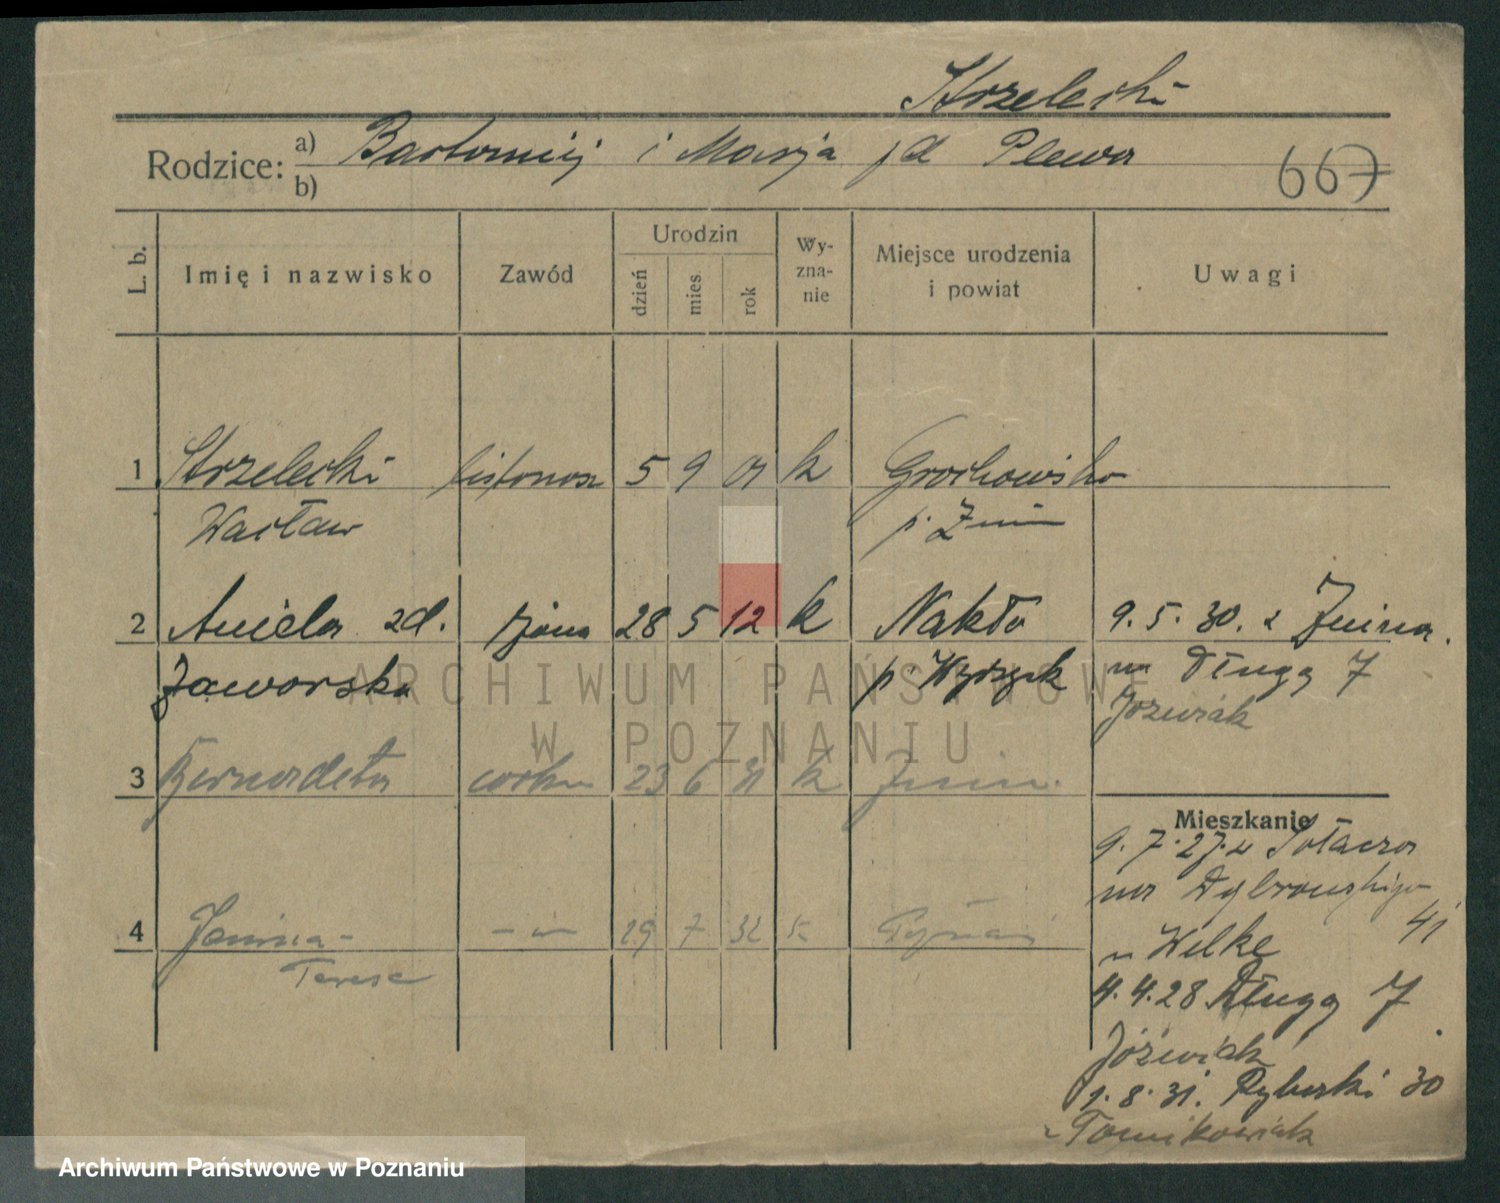 Strzelecki
Rodzice: a) Bartomiej i Marja jd Plewa
b)
667
L. b.
Imię i nazwisko
Zawód
Urodzin
dzień
mies.
rok
Wy-
zna-
nie
Miejsce urodzenia
i powiat
Uwagi
1 Strzelecki listonosz 5 9 01 k Grochowisko
Wacław p. Żnin
2 Aniela zd. żona 28 5 12 k Nakło 9. 5. 30. z Żnina
Jaworska p. Wyrzysk na Długą 7
Józwiak
3 Bernardeta córka 23 6 31 k Żnin.
Mieszkanie
9. 7. 27. z Sołacza
na Dąbrowskiego
41
u Welke
4 Janina- 29 7 32 k
Teresa
4. 4. 28 Długą 7
Józwiak
1. 8. 31. Rybaki 30
Tomikowiak
ARCHIWUM PAŃSTWOWE
W POZNANIU
Archiwum Państwowe w Poznaniu